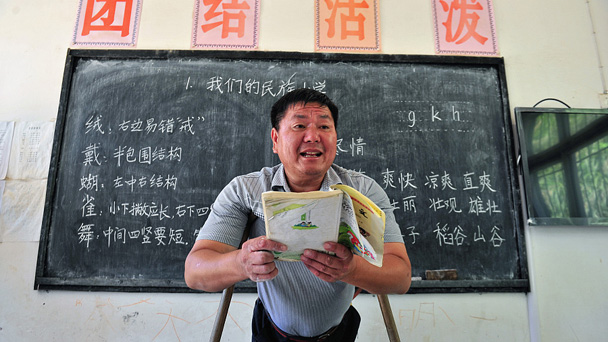 团 结 活 泼
1. 我们的民族小学
绒：右边易错"戒"
戴：半包围结构
蝴：左中右结构
雀：小下撇应长，右下四
舞：中间四竖要短，
g k h
情
爽快 凉爽 直爽
壮丽 壮观 雄壮
子 稻谷 山谷